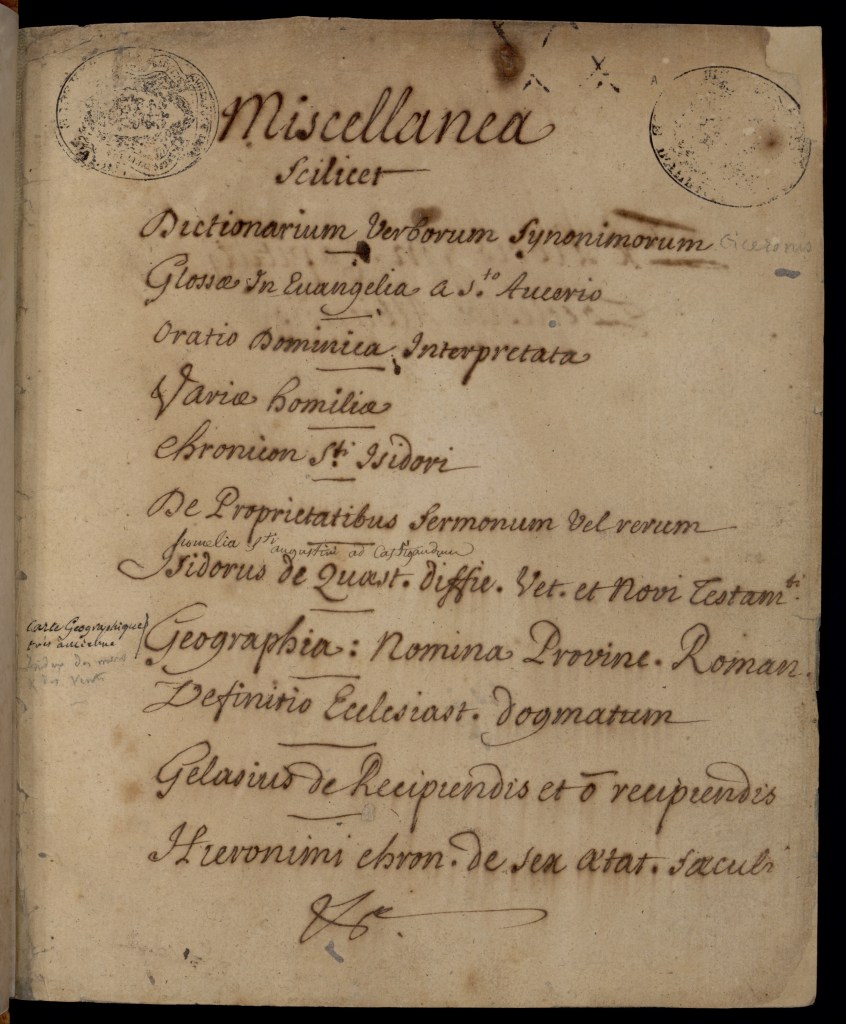 Miscellanea
Scilicet
Dictionarium Verborum Synonimorum Ciceronis
Glossæ In Euangelia a S.to Aucerio
Oratio Dominica Interpretata
Variæ homiliæ
Chronicon S.ti Isidori
De Proprietatibus Sermonum Vel rerum
homelia S.ti augustini ad Castigandum
Isidorus de Quæst. diffic. Vet. et Novi Testam.ti
Carte Geographique
très ancienne
Index des mers
& des Vents
Geographia: Nomina Provinc. Roman.
Definitio Ecclesiast. dogmatum
Gelasius de Recipiendis et õ recipiendis
Hieronimi chron. de sex ætat. sæculi
&c.